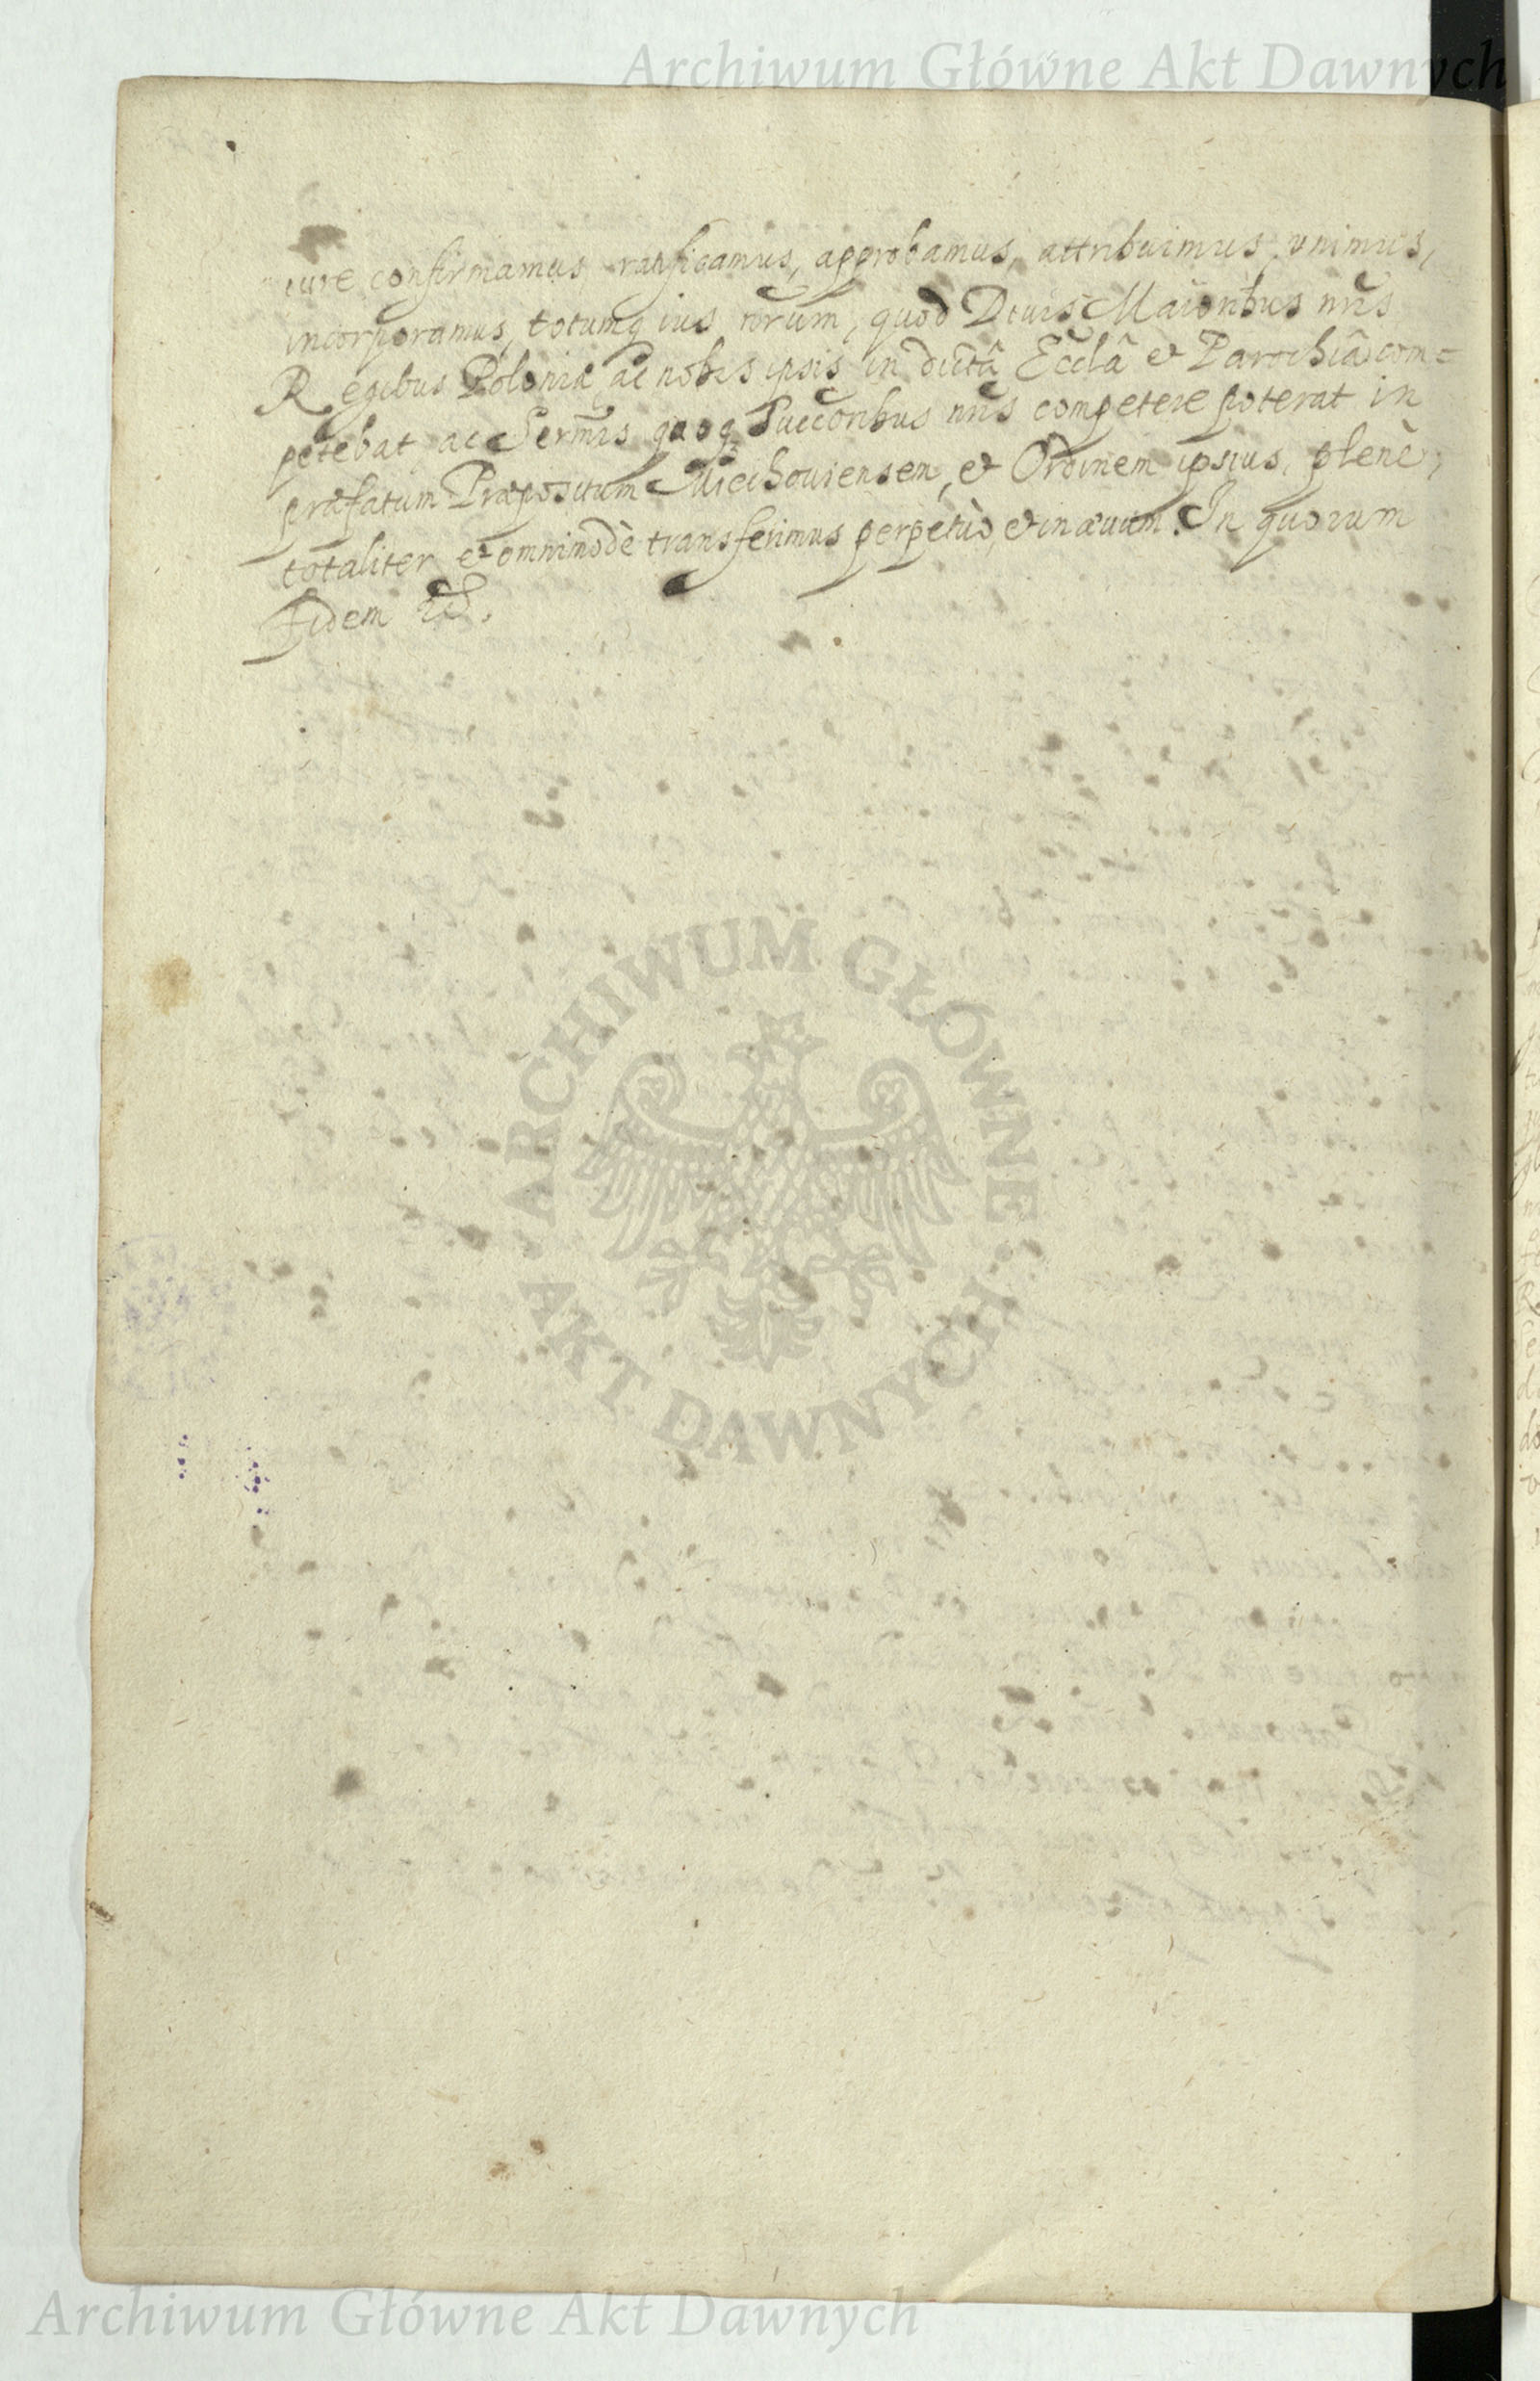 Archiwum Główne Akt Dawnych
iure confirmamus ratificamus, approbamus, attribuimus, vnimus,
incorporamus, totumq ius nrũm, quod Diuis Maioribus nr̃is
Regibus Poloniæ, ac nobis ipsis in dictâ Eccl̃â et Parochiâ com=
petebat, ac Serm̃is quoq Succ̃oribus nr̃is competere poterat in
præfatum Præpositum Miechouiensem, et Ordinem ipsius, plenè,
totaliter et omnimodè transferimus perpetuò, et in æuum. In quorum
Fidem
ARCHIWUM GŁÓWNE
AKT DAWNYCH
Archiwum Główne Akt Dawnych